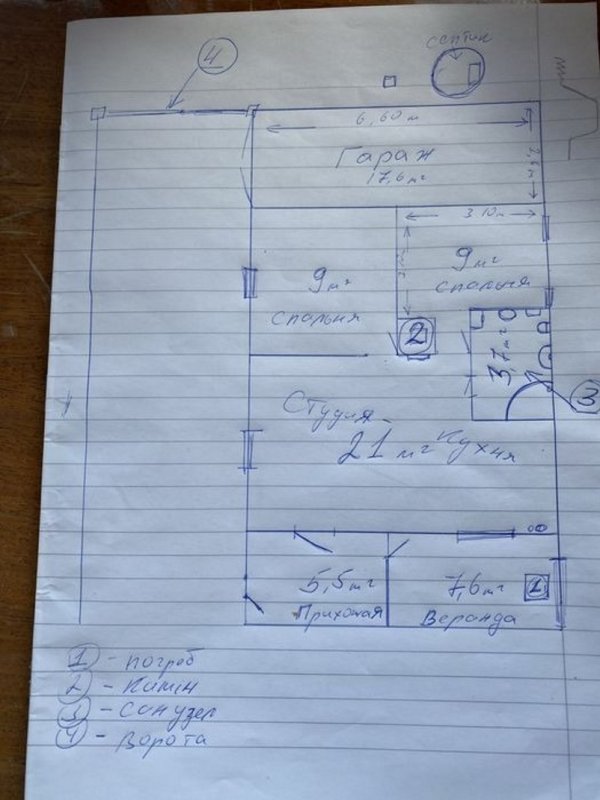 4
септик
6,60 м
Гараж
17,6 м²
2,6 м
3.10 м
9 м²
спальня
9 м²
спальня
2
3,7 м²
3
Студия-
21 м² Кухня
5,5 м²
Прихожая
7,6 м²
1
Веранда
1 - погреб
2 - Камін
3 - Санузел
4 - Ворота